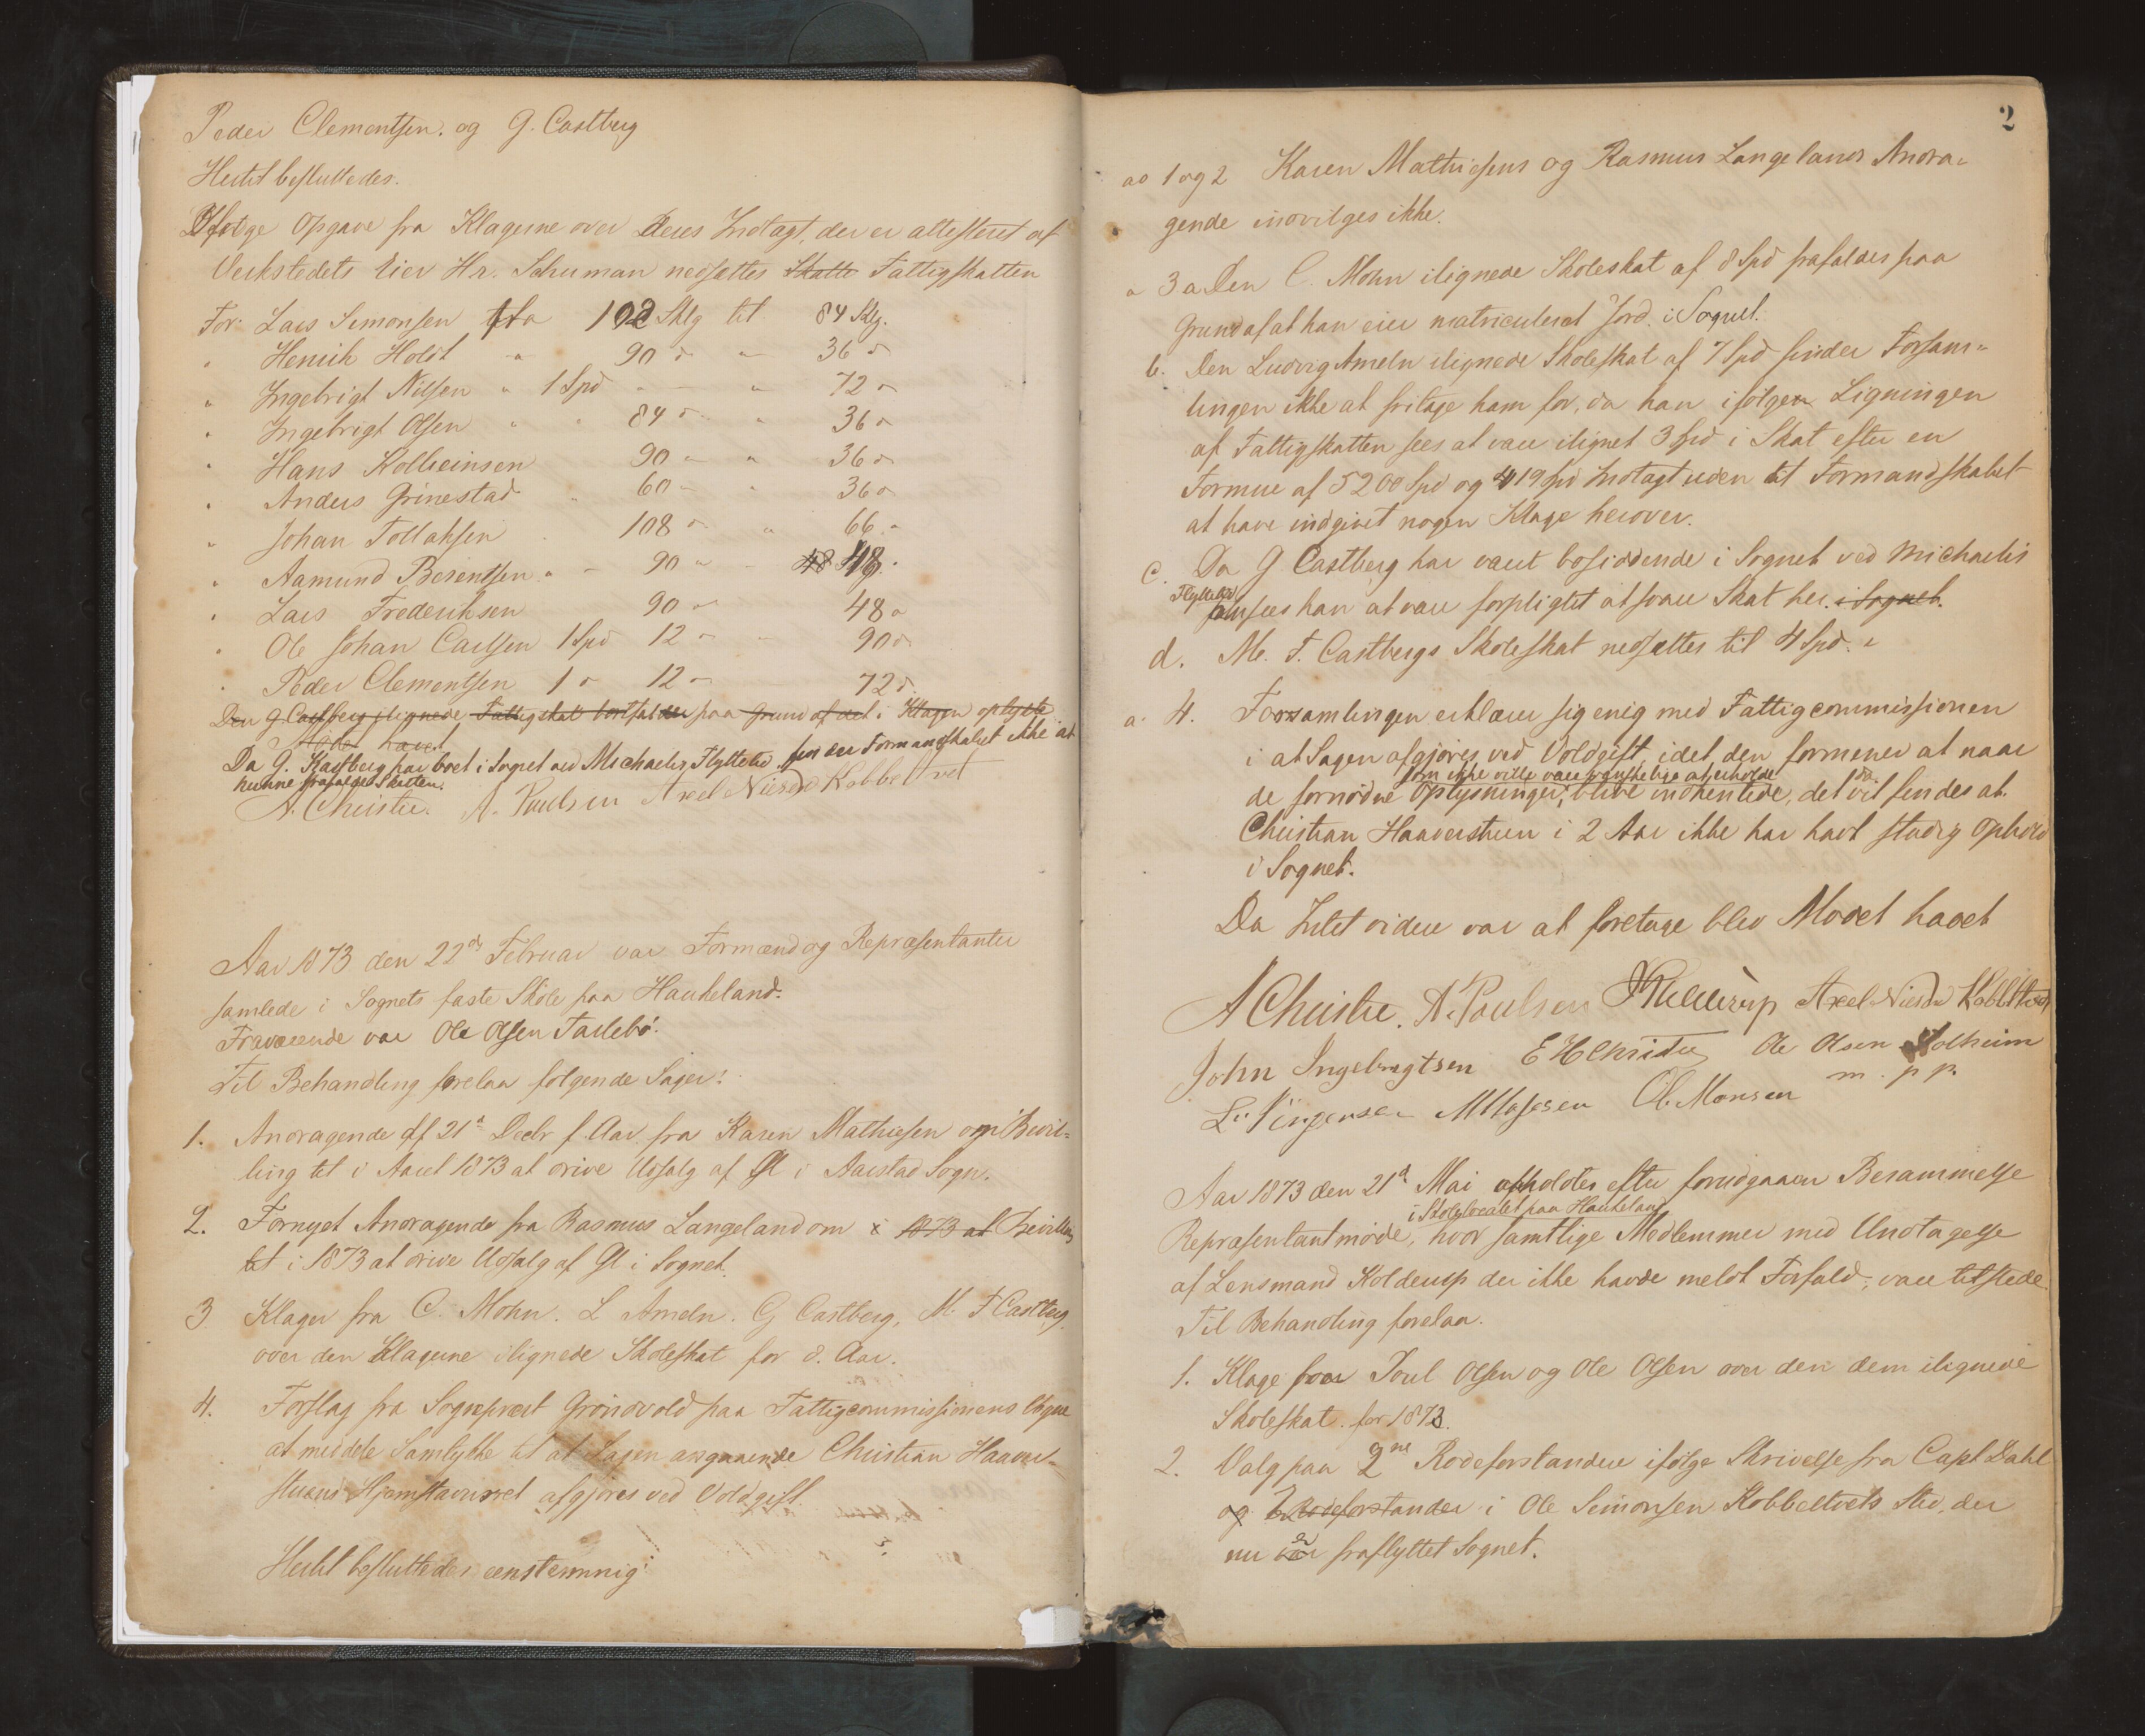 Peder Clementsen. og G. Castberg
Hertil besluttedes.
Ifølge Opgave fra Klagerne over deres Indtægt, der er attesteret af
Verkstedets Eier Hr. Schuman nedsættes Skatte Fattigskatten
For: Lars Simonsen fra 102 Sklg til 84 Sklg.
" Henrik Holst " 90 " " 36 "
" Ingebrigt Nilsen " 1 Spd " - " 72 "
" Ingebrigt Olsen " " 84 " " 36 "
" Hans Kolbeinsen 90 " " 36 "
" Anders Grinestad " 60 " " 36 "
" Johan Tollaksen 108 " " 66 "
" Aamund Berentsen " - 90 " - 48 48 "
" Lars Frederiksen 90 " 48 "
" Ole Johan Carlsen 1 Spd 12 " " 90 "
" Peder Clementsen 1 " 12 " 72 "
Den G. Castberg ilignede Fattigskat bortfalder paa Grund af det i Klagen oplyste
Mødet hævet
Da G. Kastberg har boet i Sognet ved Michaelis Flyttetid finder Formandskabet ikke at
kunne frafalde Skatten.
A. Christie. A. Paulsen Axel Nielsen Kobbeltvet
Aar 1873 den 22de Februar var Formænd og Repræsentanter
samlede i Sognets faste Skole paa Haukeland.
Fraværende var Ole Olsen Tarlebø.
Til Behandling forelaa følgende Sager:
1. Andragende af 21de Decbr f. Aar fra Karen Mathiesen om Bevil-
ling til i Aaret 1873 at drive Udsalg af Øl i Aarstad Sogn.
2. Fornyet Andragende fra Rasmus Langeland om i 1873 at Bevilling
til i 1873 at drive Udsalg af Øl i Sognet.
3 Klager fra C. Mohn. L Ameln. G Castberg, M. F Castberg
over den Klagerne ilignede Skoleskat for d. Aar.
4. Forslag fra Sogneprest Grøndvold paa Fattigcommissionens Vegne
at meddele Samtykke til at Sagen angaaende Christian Haaver-
stuens Hjemstavnsret afgjøres ved Voldgift.
Hertil besluttedes eenstemmig:
2
ad 1 og 2 Karen Mathiesens og Rasmus Langelands Andra-
gende indvilges ikke.
" 3 a Den C. Mohn ilignede Skoleskat af 8 Spd frafaldes paa
Grund af at han eier matriculeret Jord i Sognet.
b. Den Ludvig Ameln ilignede Skoleskat af 7 Spd finder Forsam-
lingen ikke at fritage ham for, da han ifølgen Ligningen
af Fattigskatten sees at være ilignet 3 Spd i Skat efter en
Formue af 5200 Spd og 419 Spd Indtægt uden til Formandskabet
at have indgivet nogen Klage herover.
c. Da G. Castberg har været bosiddende i Sognet ved Michaelis
Flyttetid
ansees han at være forpligtet at svare Skat her. i Sognet.
d. M. F. Castbergs Skoleskat nedsættes til 4 Spd. "
a. 4. Forsamlingen erklærer sig enig med Fattigcommissionen
i at Sagen afgjøres ved Voldgift, idet den formener at naar
som ikke ville være vanskelige at erholde da
de fornødne Oplysninger, blive indhentede, det vil findes at
Christian Haaverstuen i 2 Aar ikke har havt stadig Ophold
i Sognet.
Da Intet videre var at foretage blev Mødet hævet
A Christie. A. Paulsen Kolderup Axel Nielsen Kobbeltvedt
John Ingebrigtsen E H Christie Ole Olsen Solheim
m. p p.
L. Jørgensen M Mosesen O. Monsen
Aar 1873 den 21de Mai afholdtes efter foregaaen Berammelse
i Skolelocalet paa Haukeland
Repræsentantmøde, hvor samtlige Medlemmer med Undtagelse
af Lensmand Kolderup der ikke havde meldt Forfald, vare tilstede.
Til Behandling forelaa.
1. Klage fra Poul Olsen og Ole Olsen over den dem ilignede
Skoleskat for 1873.
2. Valg paa 2ne Rodeforstandere ifølge Skrivelse fra Capt Dahl
og Rodeforstander i Ole Simonsen Kobbeltvets Sted, der
er
nu var fraflyttet Sognet.